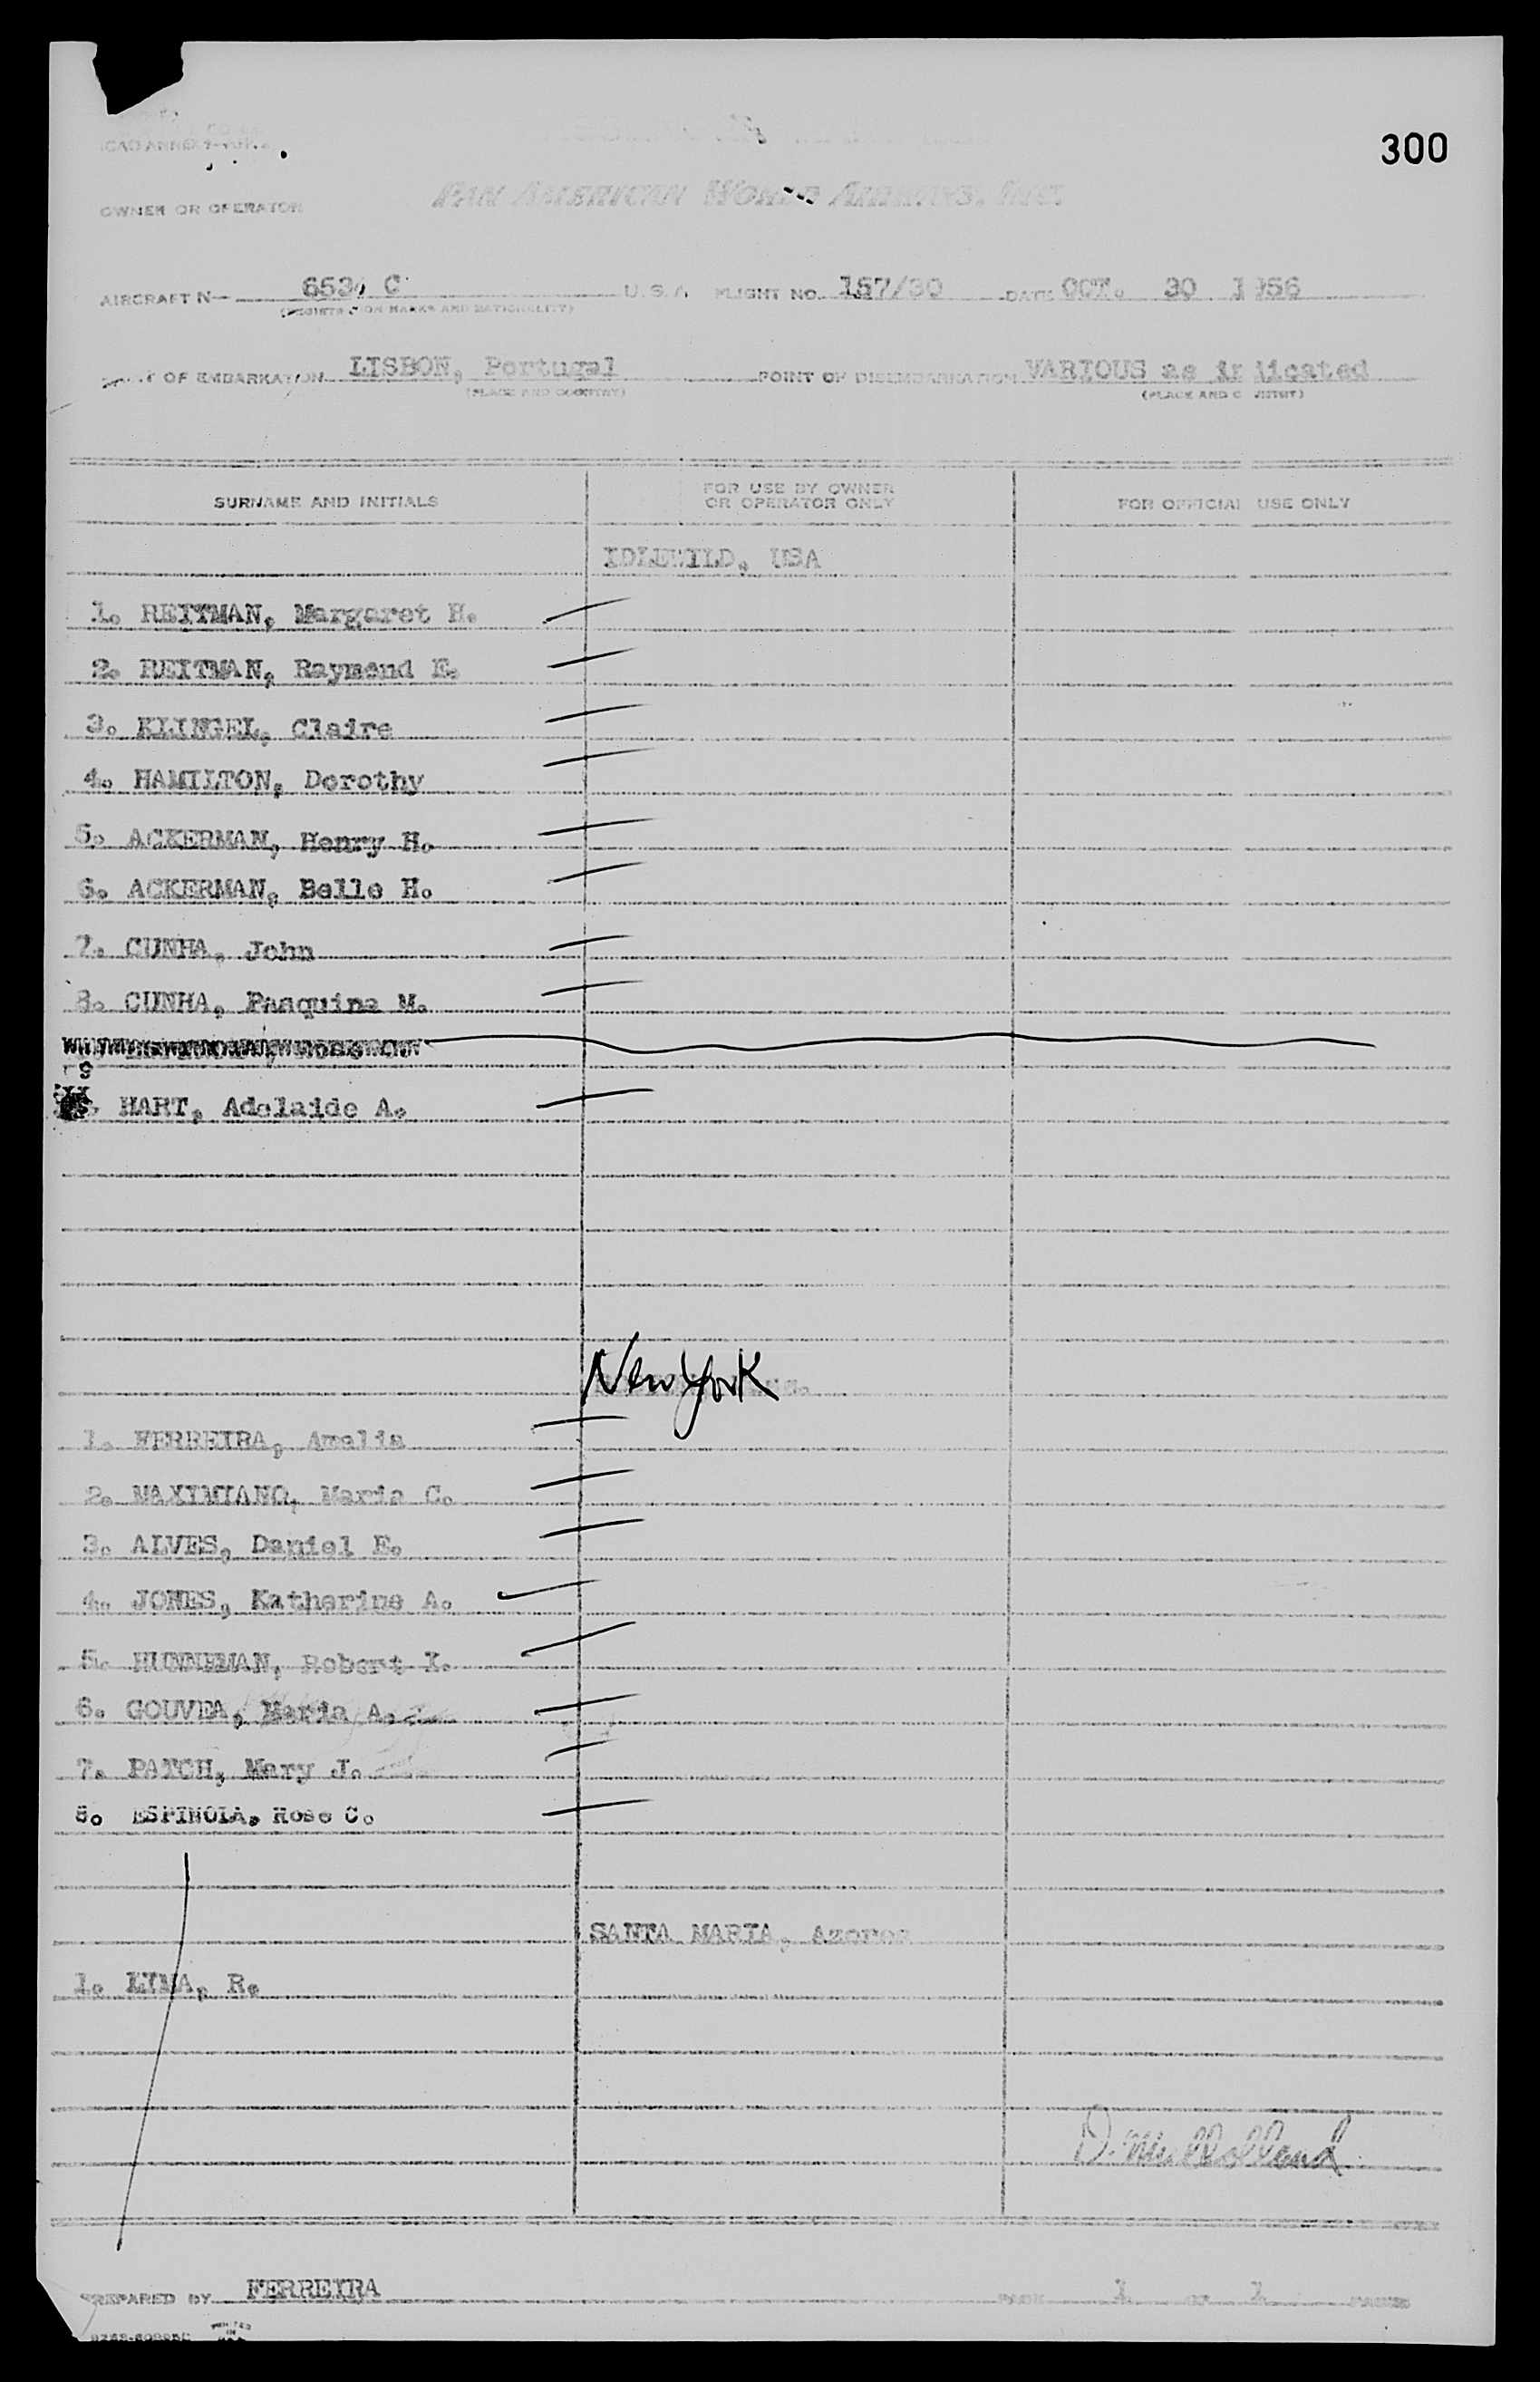 300
OWNER OR OPERATOR
PAN AMERICAN WORLD AIRWAYS, INC.
AIRCRAFT N— C U.S.A. FLIGHT NO. 157/30 DATE OCT. 30 1956
(REGISTRATION MARKS AND NATIONALITY)
OF EMBARKATION LISBON, Portugal POINT OF DISEMBARKATION VARIOUS as indicated
(PLACE AND COUNTRY) (PLACE AND COUNTRY)
SURNAME AND INITIALS FOR USE BY OWNER OR OPERATOR ONLY FOR OFFICIAL USE ONLY
IDLEWILD, USA
1. REITMAN, Margaret H.
2. REITMAN, Raymond E.
3. KLINGEL, Claire
4. HAMILTON, Dorothy
5. ACKERMAN, Henry H.
6. ACKERMAN, Belle H.
7. CUNHA, John
8. CUNHA, Pasquina M.
9
HART, Adelaide A.
New York
1. FERREIRA, Amelia
2. MAXIMIANO, Maria C.
3. ALVES, Daniel E.
4. JONES, Katherine A.
5. HUNNEMAN, Robert I.
6. GOUVEA, Maria A.
7. PATCH, Mary J.
8. ESPINOLA, Rose C.
SANTA MARIA, Azores
1. LYMA, R.
D. Mulholland
PREPARED BY FERREIRA PAGE 1 OF 1 PAGES
PRINTED
IN